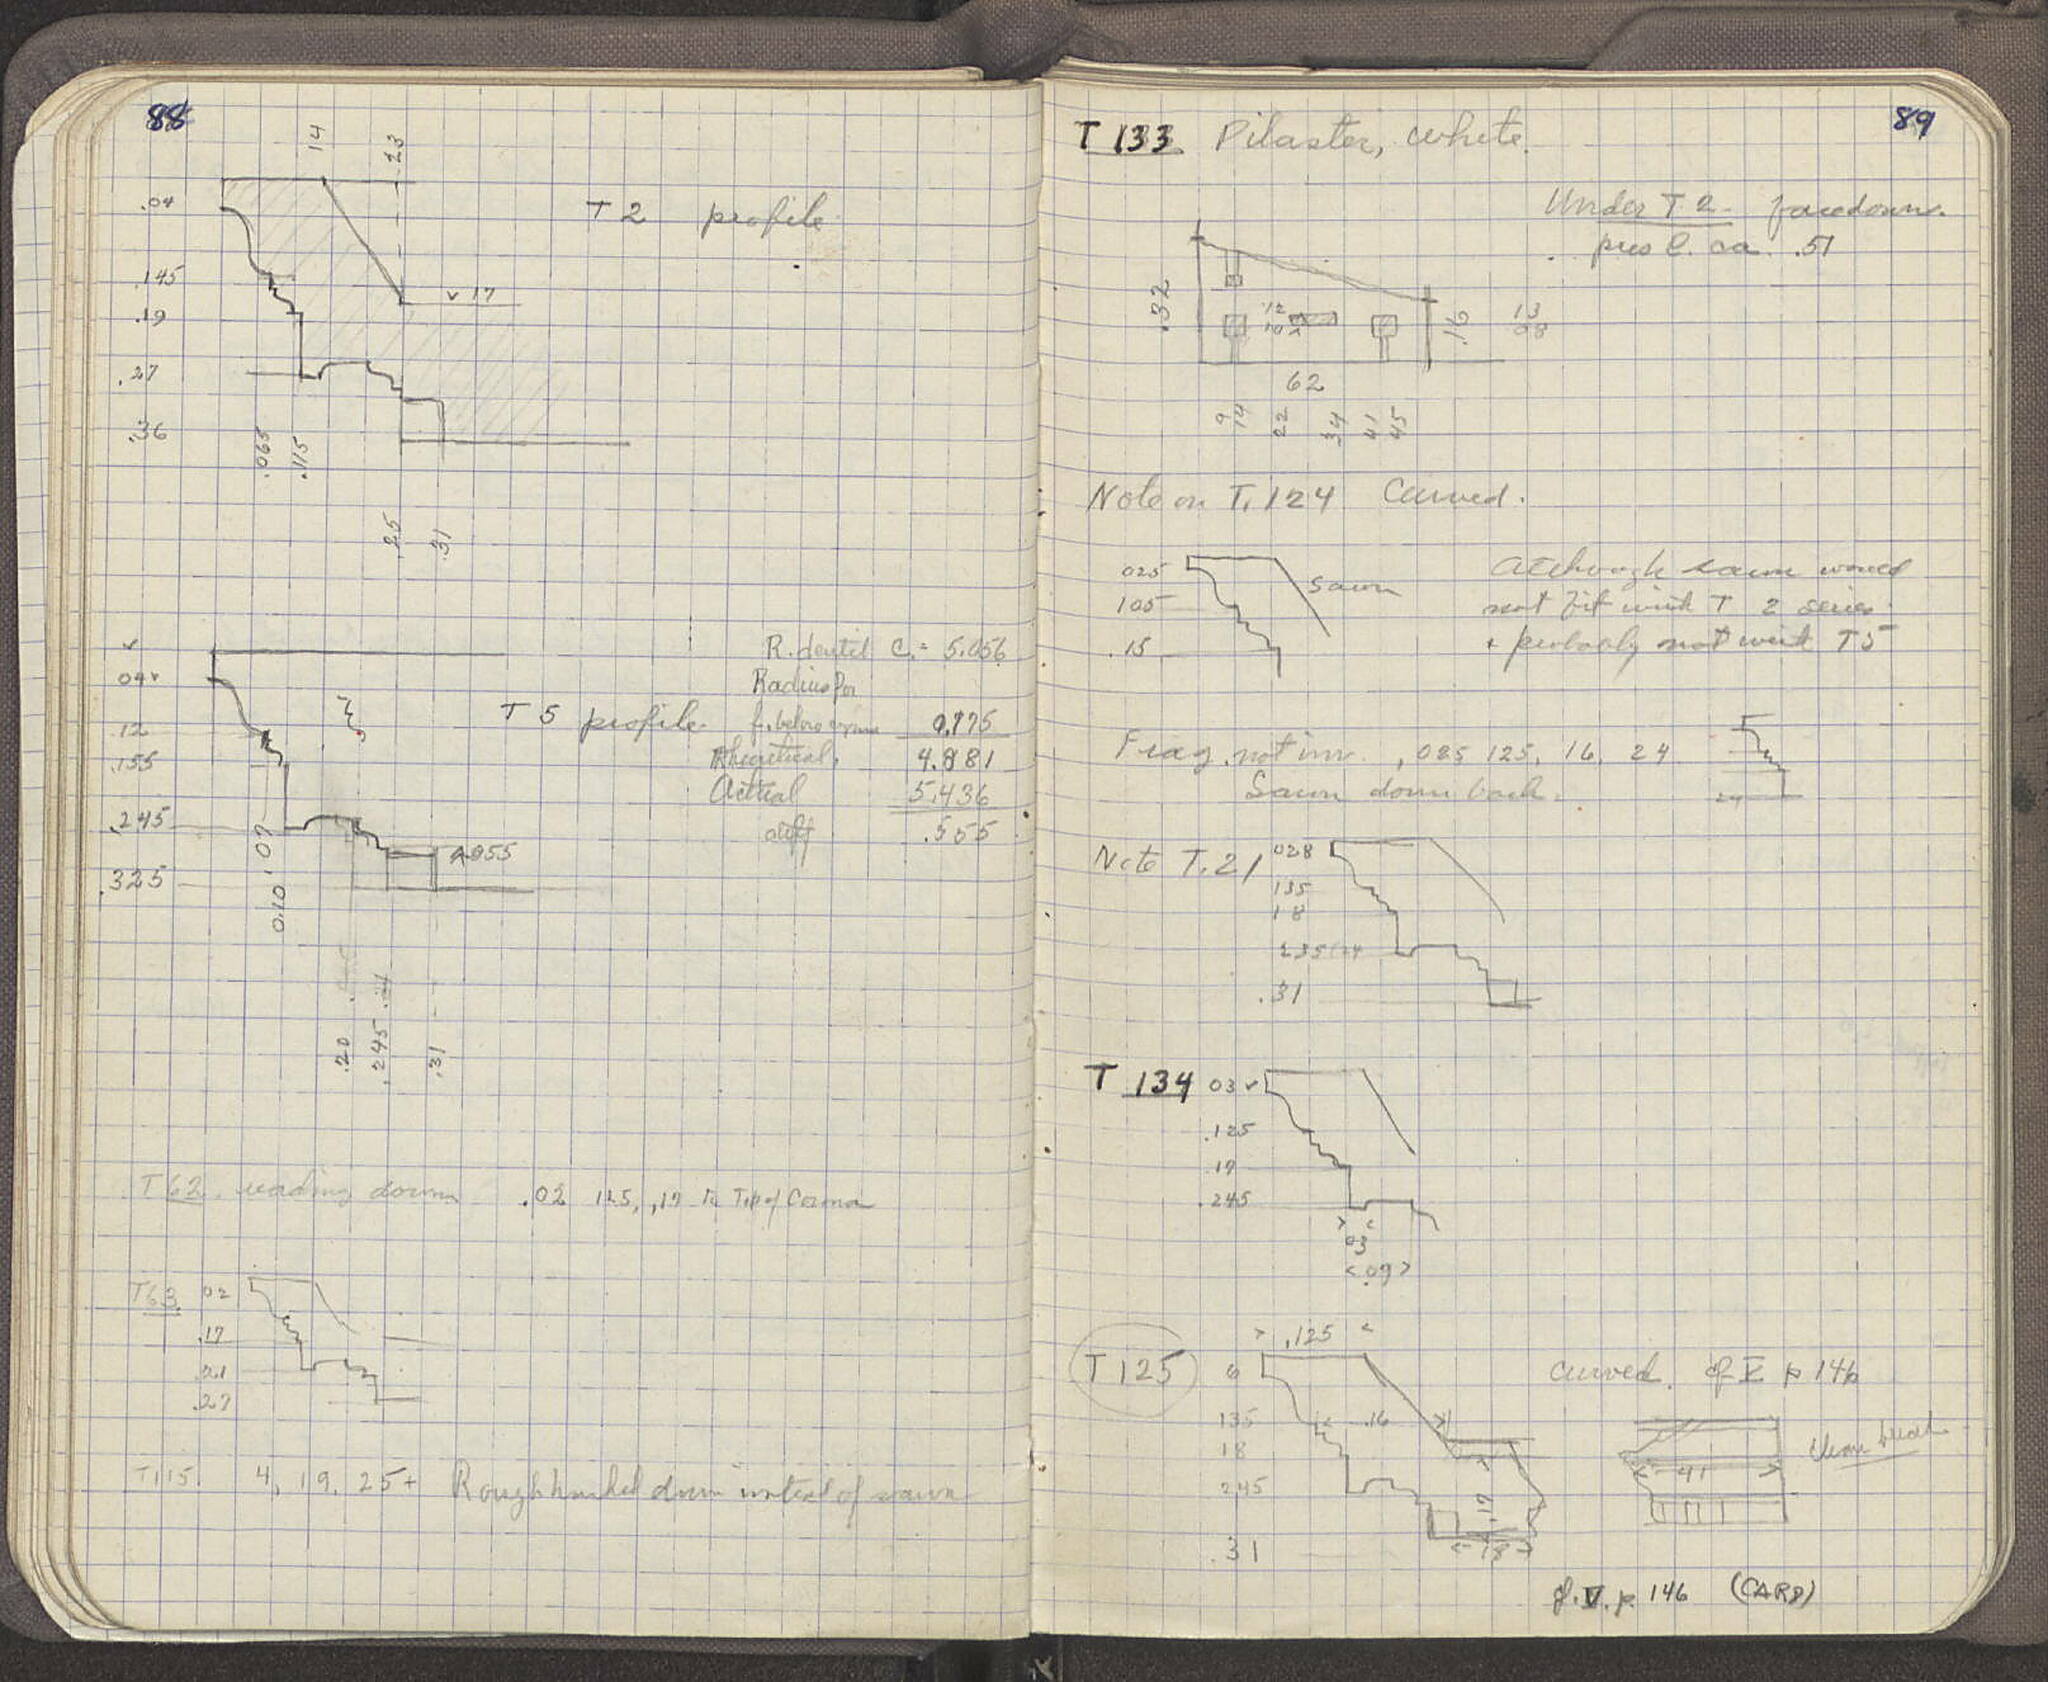 88
14
.23
.04
T 2 profile
.145
v 17
.19
.27
.36
.065
.115
.25
.31
R. dentil C. = 5.056
04v
Radius for
T 5 profile
0.175
.12
4.881
.155
Actual 5.436
.245
diff .555
.055
.325
0.10
07
.20
.245
.31
T62 reading down .02 125, .17 to Top of Corona
T63 02
.17
.21
.27
T115. 4, 19. 25+ Rough hacked down instead of sawn
89
T 133 Pilaster, White.
Under T 2 - facedown.
pres l. ca. .51
.32
12
10
.16
13
08
62
9
14
22
34
41
45
Note on T. 124 Curved.
025
sawn
105
.15
Although sawn would
not fit with T 2 series
+ probably not with T5
Frag. not inv. , 025 125, 16, 24
24
Sawn down back.
Note T. 21
028
135
18
235/24
.31
T 134 03 v
.125
.17
.245
> <
03
<.09>
> .125 <
T 125
6
curved. cf V p 146
135
.16
18
245
41
clean break
.17
18
.31
cf. V. p. 146 (CARD)